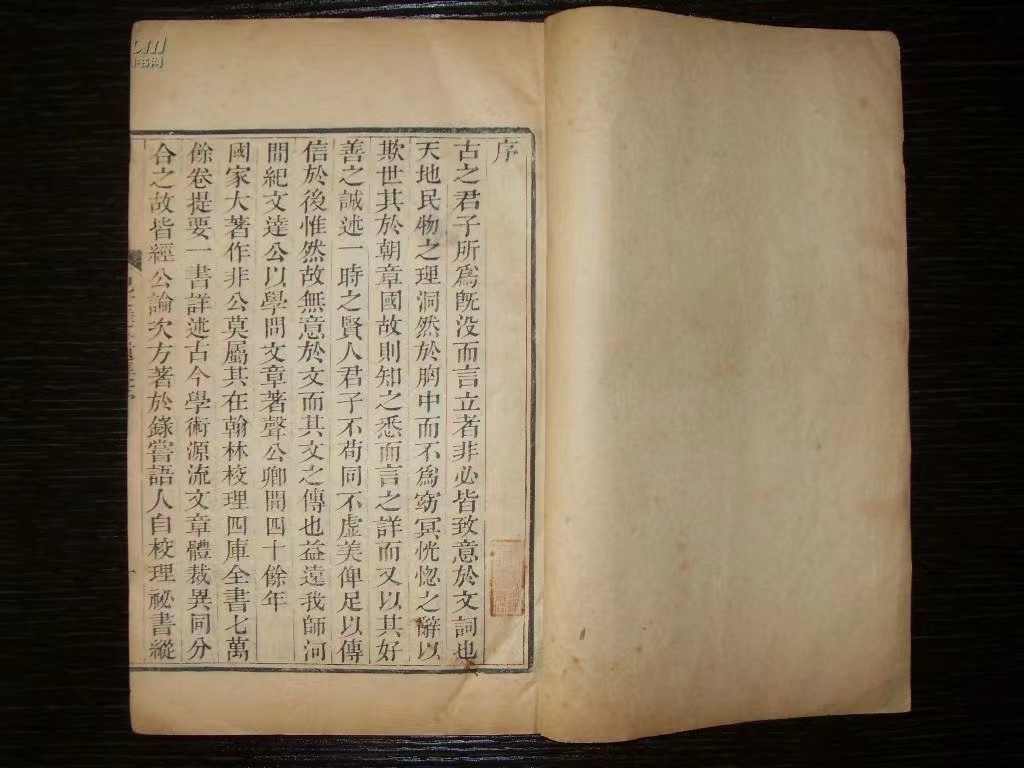 序
古之君子所爲旣没而言立者非必皆致意於文詞也
天地民物之理洞然於胸中而不爲窈冥恍惚之辭以
欺世其於朝章國故則知之悉而言之詳而又以其好
善之誠述一時之賢人君子不苟同不虛美俾足以傳
信於後惟然故無意於文而其文之傳也益遠我師河
間紀文達公以學問文章著聲公卿間四十餘年
國家大著作非公莫屬其在翰林校理四庫全書七萬
餘卷提要一書詳述古今學術源流文章體裁異同分
合之故皆經公論次方著於錄嘗語人自校理祕書縱